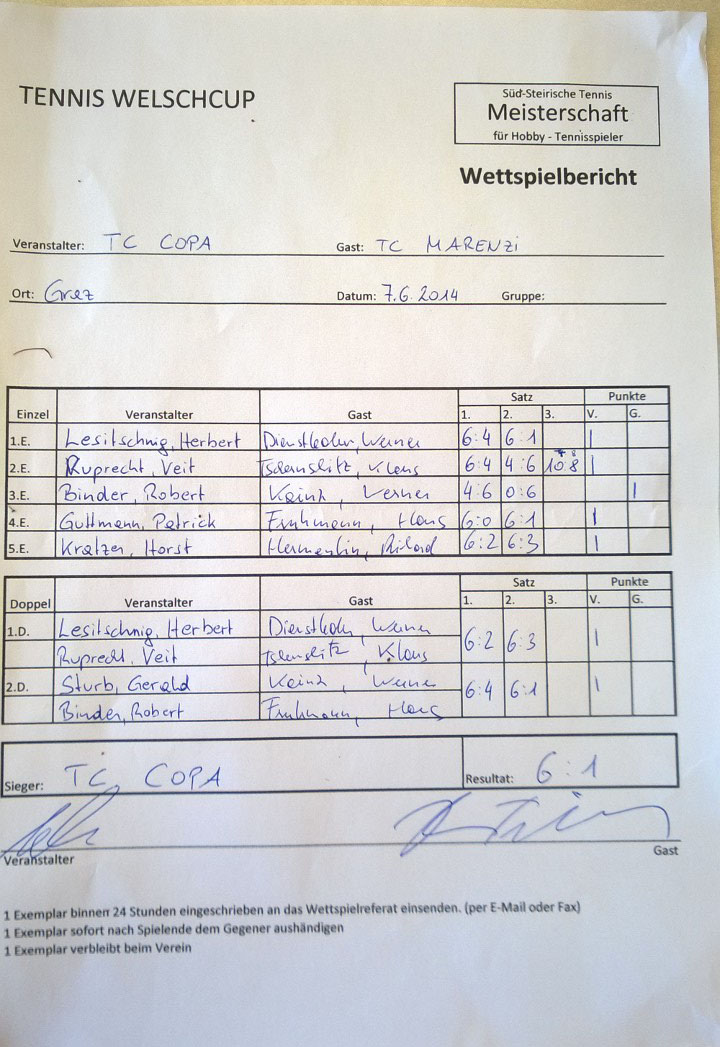 TENNIS WELSCHCUP
Süd-Steirische Tennis
Meisterschaft
für Hobby - Tennisspieler
Wettspielbericht
Veranstalter: TC COPA Gast: TC MARENZi
Ort: Graz Datum: 7.6.2014 Gruppe:
Satz Punkte
Einzel Veranstalter Gast 1. 2. 3. V. G.
1.E. Lesitschnig, Herbert Werner 6:4 6:1 |
2.E. Ruprecht, Veit Klaus 6:4 4:6 10:8 |
3.E. Binder, Robert Kainz, Werner 4:6 0:6 |
4.E. Guttmann, Patrick Fruhmann, Hans 6:0 6:1 |
5.E. Kratzer, Horst 6:2 6:3 |
Satz Punkte
Doppel Veranstalter Gast 1. 2. 3. V. G.
1.D. Lesitschnig, Herbert Werner 6:2 6:3 |
Ruprecht, Veit Klaus
2.D. Sturb, Gerald Kainz, Werner 6:4 6:1 |
Binder, Robert Fruhmann, Hans
Sieger: TC COPA Resultat: 6:1
Veranstalter Gast
1 Exemplar binnen 24 Stunden eingeschrieben an das Wettspielreferat einsenden. (per E-Mail oder Fax)
1 Exemplar sofort nach Spielende dem Gegener aushändigen
1 Exemplar verbleibt beim Verein